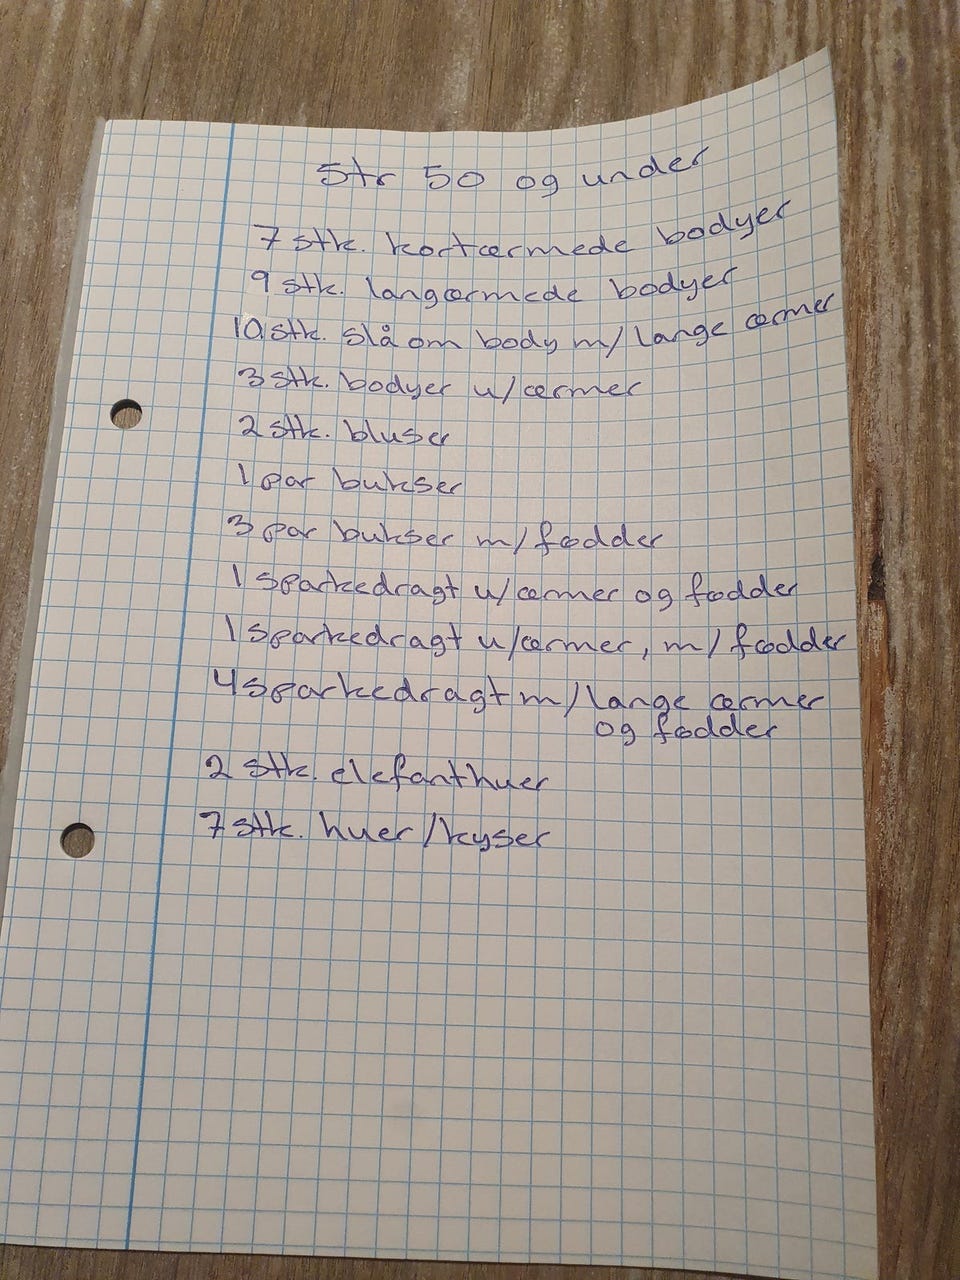 Str 50 og under
7 stk. kortærmede bodyer
9 stk. langærmede bodyer
10 stk. slå om body m/lange ærmer
3 stk. bodyer u/ærmer
2 stk. bluser
1 par bukser
3 par bukser m/fødder
1 sparkedragt u/ærmer og fødder
1 sparkedragt u/ærmer, m/fødder
4 sparkedragt m/lange ærmer
og fødder
2 stk. elefanthuer
7 stk. huer/kyser